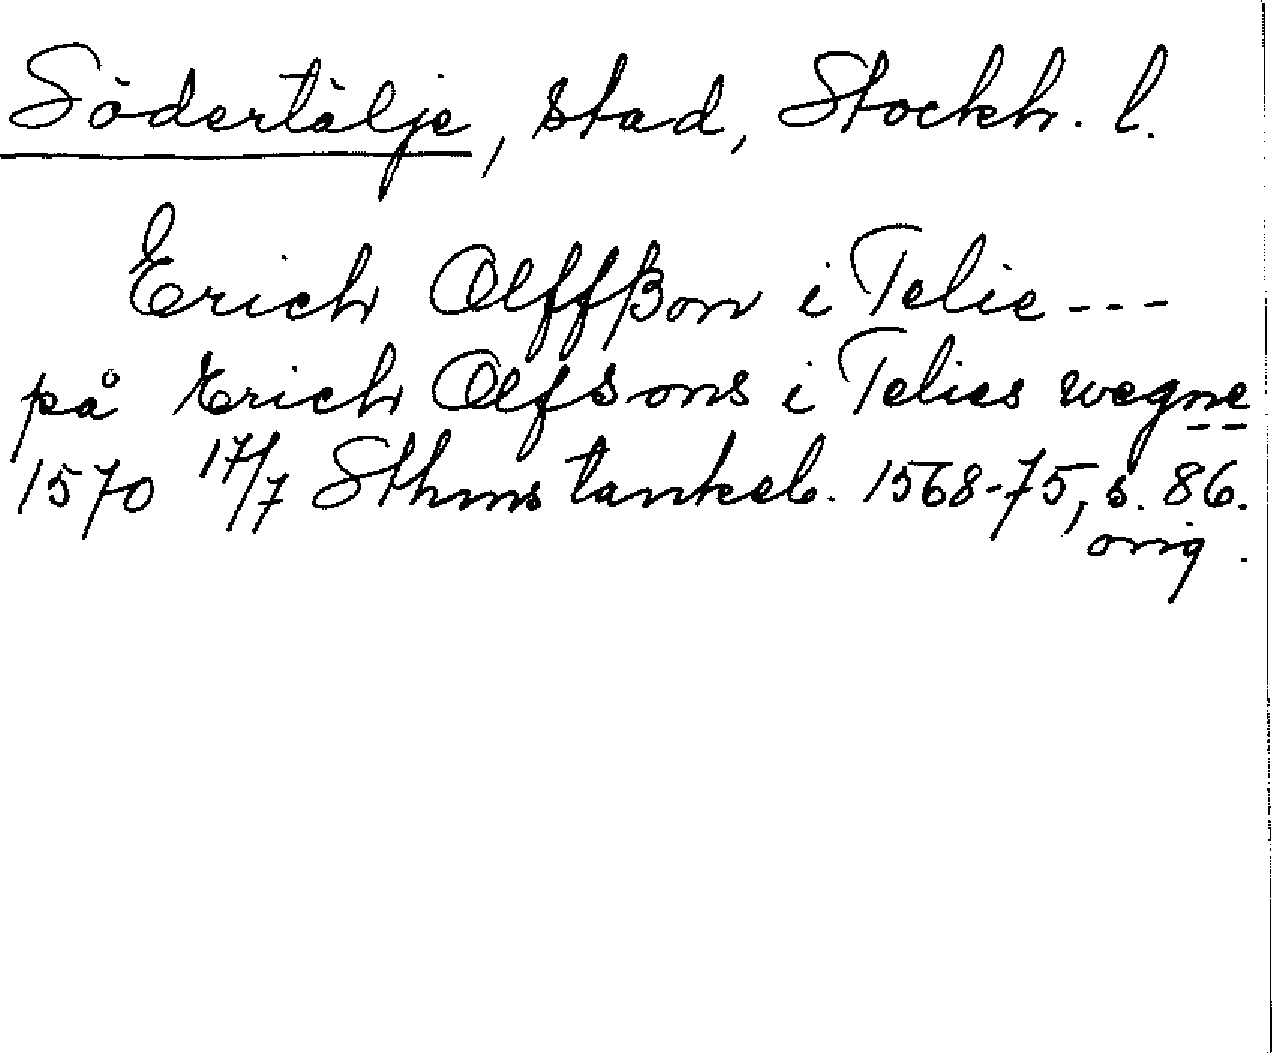 Södertälje, stad, Stockh. l.
Erich Olffßon i Telie ---
på Erich Olfsons i Telies wegne
1570 17/7 Sthms tänkeb. 1568-75, s. 86.
orig.